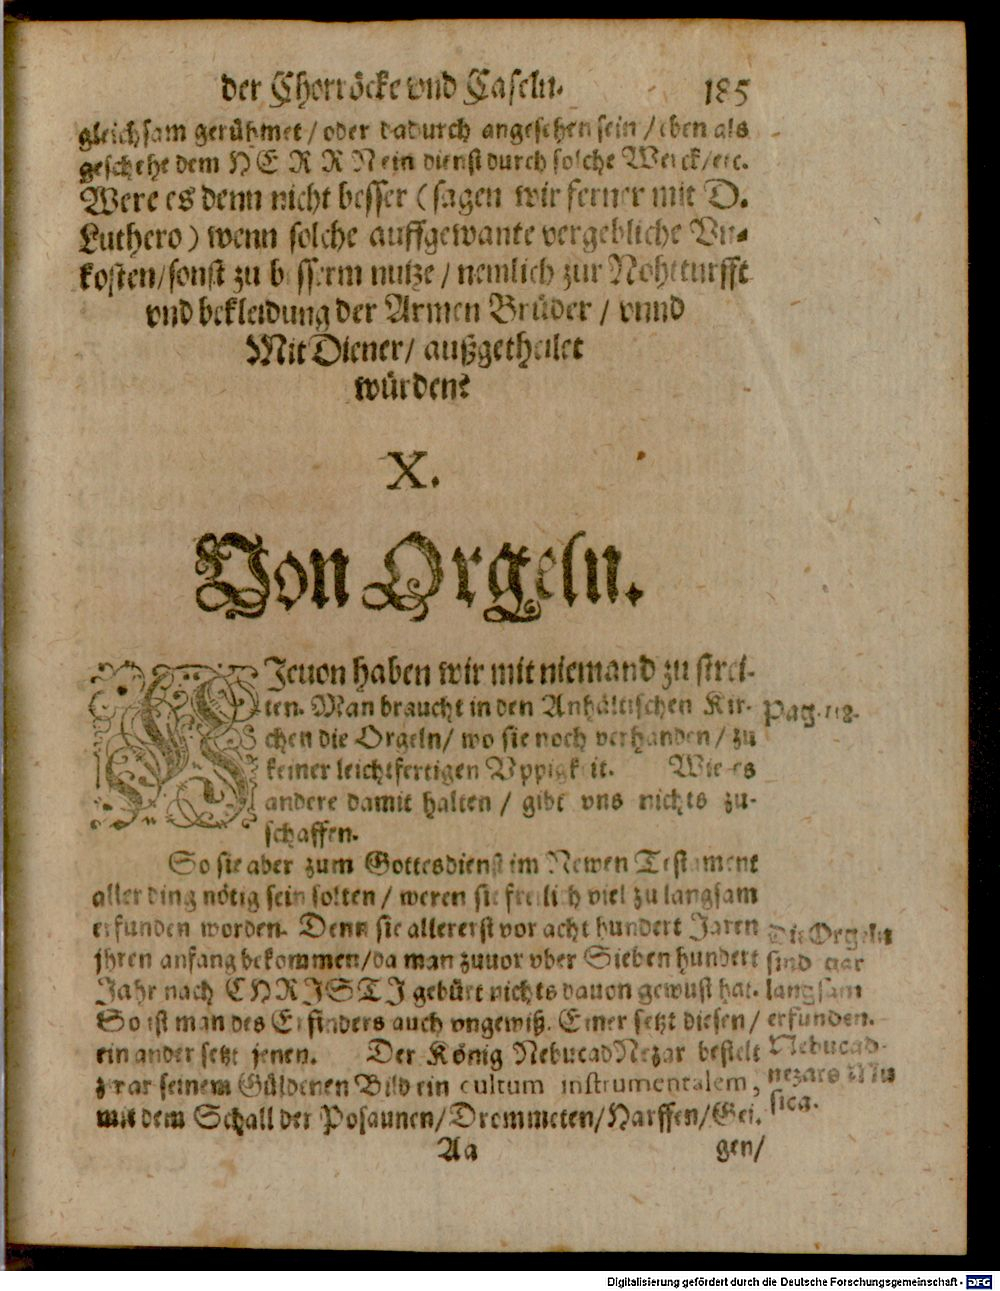 der Chorröcke vnd Caseln. 185
gleichsam gerühmet / oder dadurch angesehen sein / eben als
geschehe dem HERRN ein dienst durch solche Werck / etc.
Were es denn nicht besser ( sagen wir ferner mit D.
Luthero ) wenn solche auffgewante vergebliche Vn-
kosten / sonst zu besserm nutze / nemlich zur Nohtturfft
vnd bekleidung der Armen Brüder / vnnd
Mit Diener / außgetheilet
würden?
X.
Von Orgeln.
HJeuon haben wir mit niemand zu strei-
ten. Man braucht in den Anhältischen Kir-
chen die Orgeln / wo sie noch verhanden / zu
keiner leichtfertigen Vppigkeit. Wie es
andere damit halten / gibt vns nichts zu-
schaffen.
Pag.
So sie aber zum Gottesdienst im Newen Testament
aller ding nötig sein solten / weren sie freilich viel zu langsam
erfunden worden. Denn sie allererst vor acht hundert Jaren
jhren anfang bekommen / da man zuuor vber Sieben hundert
Jahr nach CHRISTI gebürt nichts dauon gewust hat.
So ist man des Erfinders auch vngewiß. Einer setzt diesen /
ein ander setzt jenen. Der König NebucadNezar bestelt
zwar seinem Güldenen Bild ein cultum instrumentalem,
mit dem Schall der Posaunen / Drommeten / Harffen / Gei-
Die Orgeln
sind gar
langsam
erfunden.
Nebucad-
nezars Mu
sica.
Aa gen /
Digitalisierung gefördert durch die Deutsche Forschungsgemeinschaft - DFG